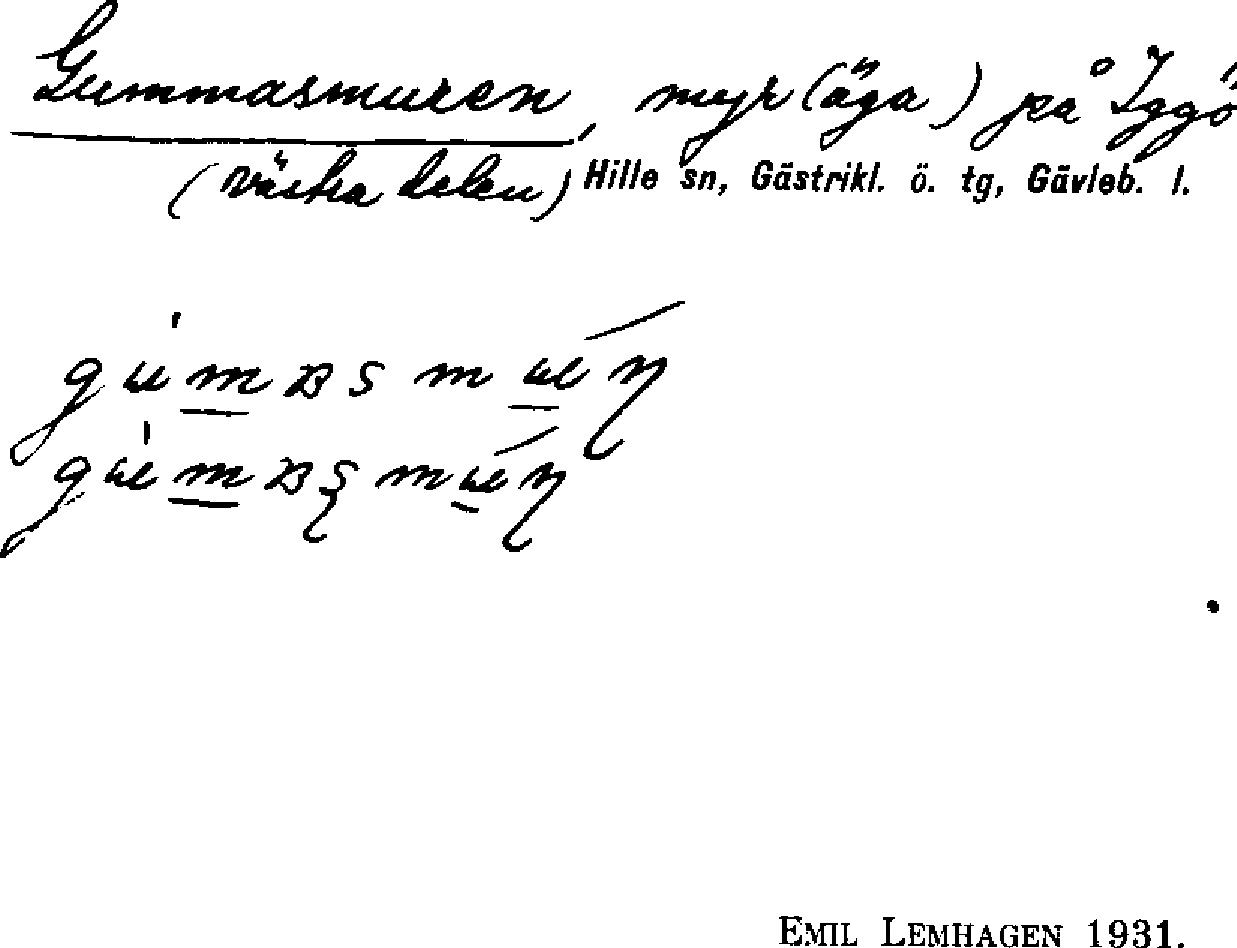 Gummasmuren, myr (äga) på Iggö
(västra delen) Hille sn, Gästrikl. ö. tg, Gävleb. l.
EMIL LEMHAGEN 1931.